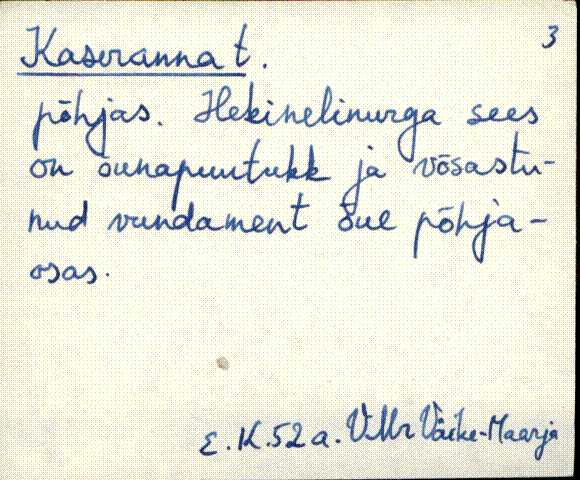 Kaseranna t. 3
põhjas. Hekinelinurga sees
on õunapuutukk ja võsastu-
nud vundament õue põhja-
osas.
E.K. 52 a. VMr Väike-Maarja